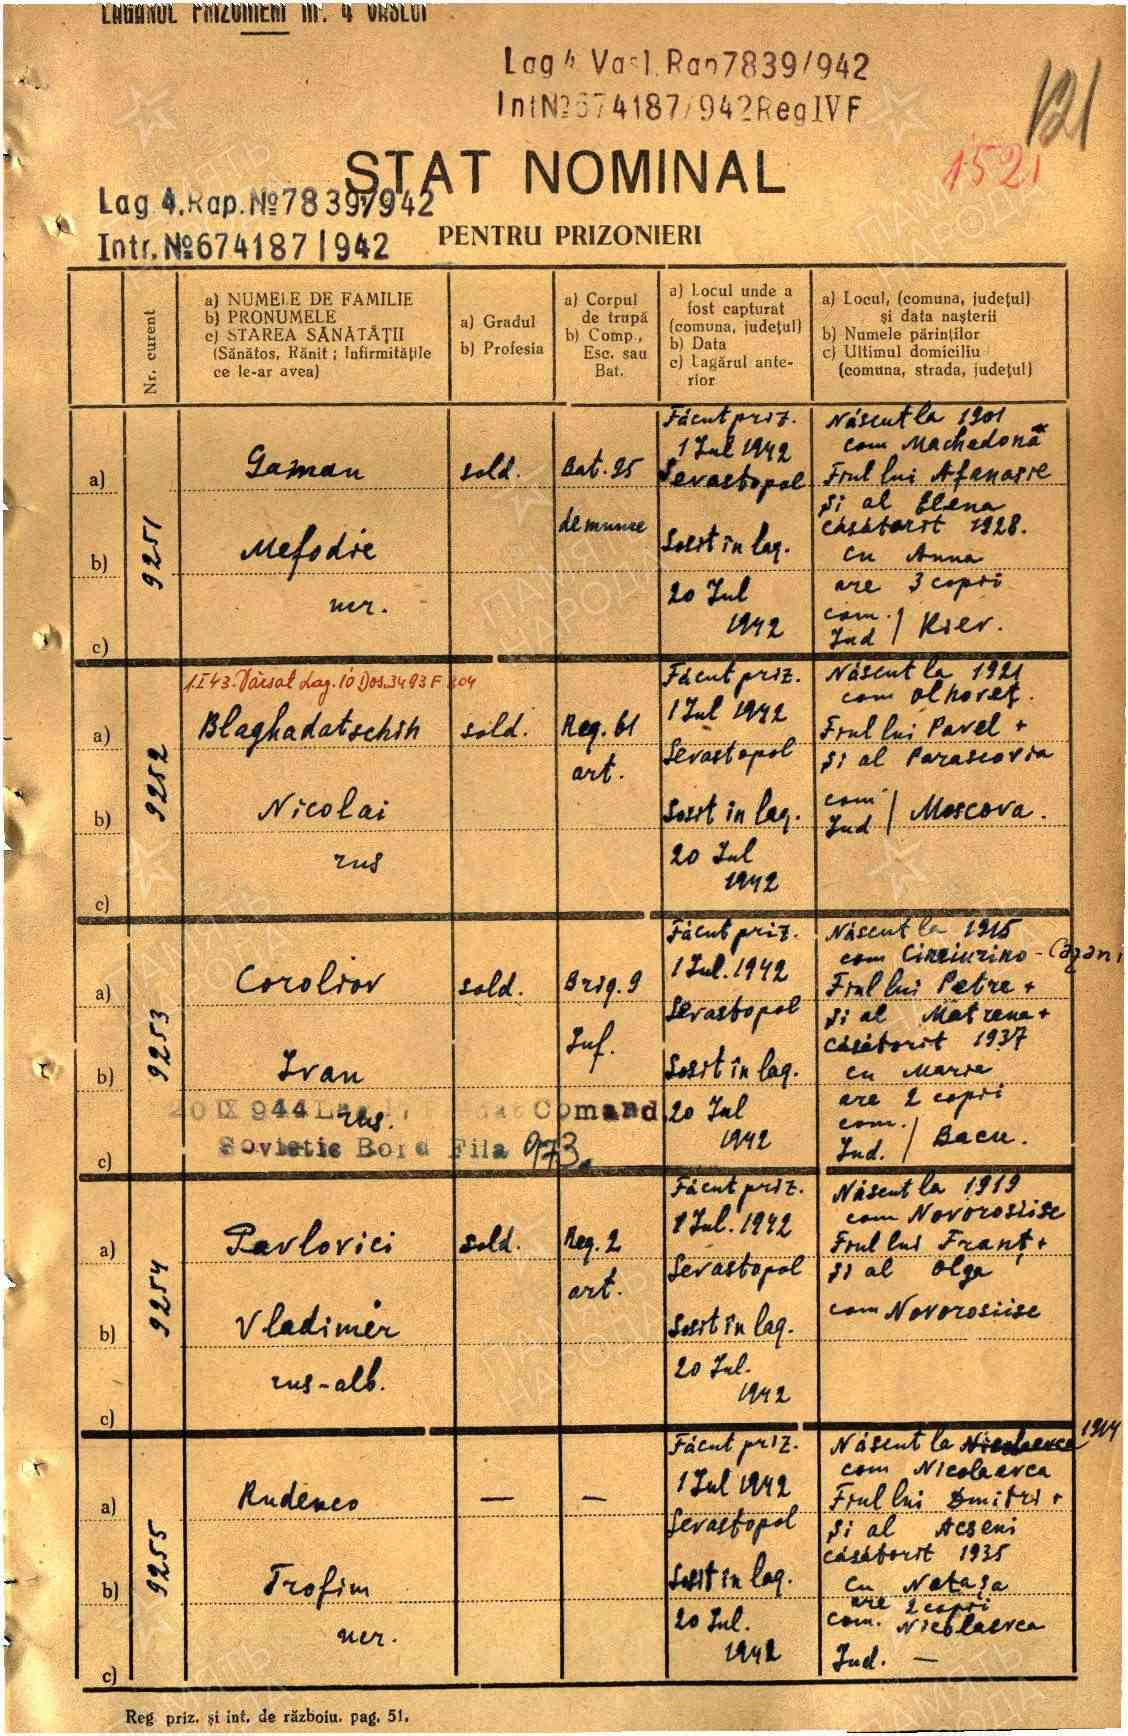 LAGĂRUL PRIZONIERI nr. 4 VASLUI
Lag 4 Vasl. Rap 7839/942
Int № 674187/942 Reg IV F
121
1521
STAT NOMINAL
Lag 4. Rap. № 7839/942
Intr. № 674187/942
PENTRU PRIZONIERI
Nr. curent
a) NUMELE DE FAMILIE
b) PRONUMELE
c) STAREA SĂNĂTĂȚII
(Sănătos, Rănit; Infirmitățile
ce le-ar avea)
a) Gradul
b) Profesia
a) Corpul
de trupă
b) Comp.,
Esc. sau
Bat.
a) Locul unde a
fost capturat
(comuna, județul)
b) Data
c) Lagărul ante-
rior
a) Locul, (comuna, județul)
și data nașterii
b) Numele părinților
c) Ultimul domiciliu
(comuna, strada, județul)
a)
b)
c)
9251
Gaman
Mefodie
ucr.
sold.
Bat. 25
de munce
Făcut priz.
1 Iul 1942
Sevastopol
Sosit în lag.
20 Iul
1942
Născut la 1901
com Machadonă
Fiul lui Afanasie
și al Elena
căsătorit 1928.
cu Anna
are 3 copii
com. / Kiev.
Jud
1.I 43. Vărsat Lag. 10 Dos. 3493 F 404
a)
b)
c)
9252
Blaghadatschih
Nicolai
rus
sold.
Reg. 61
art.
Făcut priz.
1 Iul 1942
Sevastopol
Sosit în lag.
20 Iul
1942
Născut la 1921
com Olhoveț.
Fiul lui Pavel +
și al Parascovia
com / Moscova.
Jud
a)
b)
c)
9253
Coroliov
Ivan
rus.
20 IX 944 Comand
Sovietic Bord Fila 973.
sold.
Brig. 9
Inf.
Făcut priz.
1 Iul. 1942
Sevastopol
Sosit în lag.
20 Iul
1942
Născut la 1915
com - Cazani
Fiul lui Petre +
și al Matrena +
căsătorit 1937
cu Maria
are 2 copii
com. / Bacu.
Jud.
a)
b)
c)
9254
Pavlovici
Vladimir
rus-alb.
sold.
Reg. 2
art.
Făcut priz.
1 Iul. 1942
Sevastopol
Sosit în lag.
20 Iul.
1942
Născut la 1919
com Novorosiisc
Fiul lui Franț +
și al Olga
com Novorosiisc
a)
b)
c)
9255
Rudenco
Trofim
ucr.
—
—
Făcut priz.
1 Iul 1942
Sevastopol
Sosit în lag.
20 Iul.
1942
Născut la Nicolaevca 1914
com Nicolaevca
Fiul lui Dmitri +
și al Acseni
căsătorit 1935
cu Natașa
are 2 copii
com. Nicolaevca
Jud. —
Reg priz. și int. de războiu. pag. 51.
ПАМЯТЬ
НАРОДА